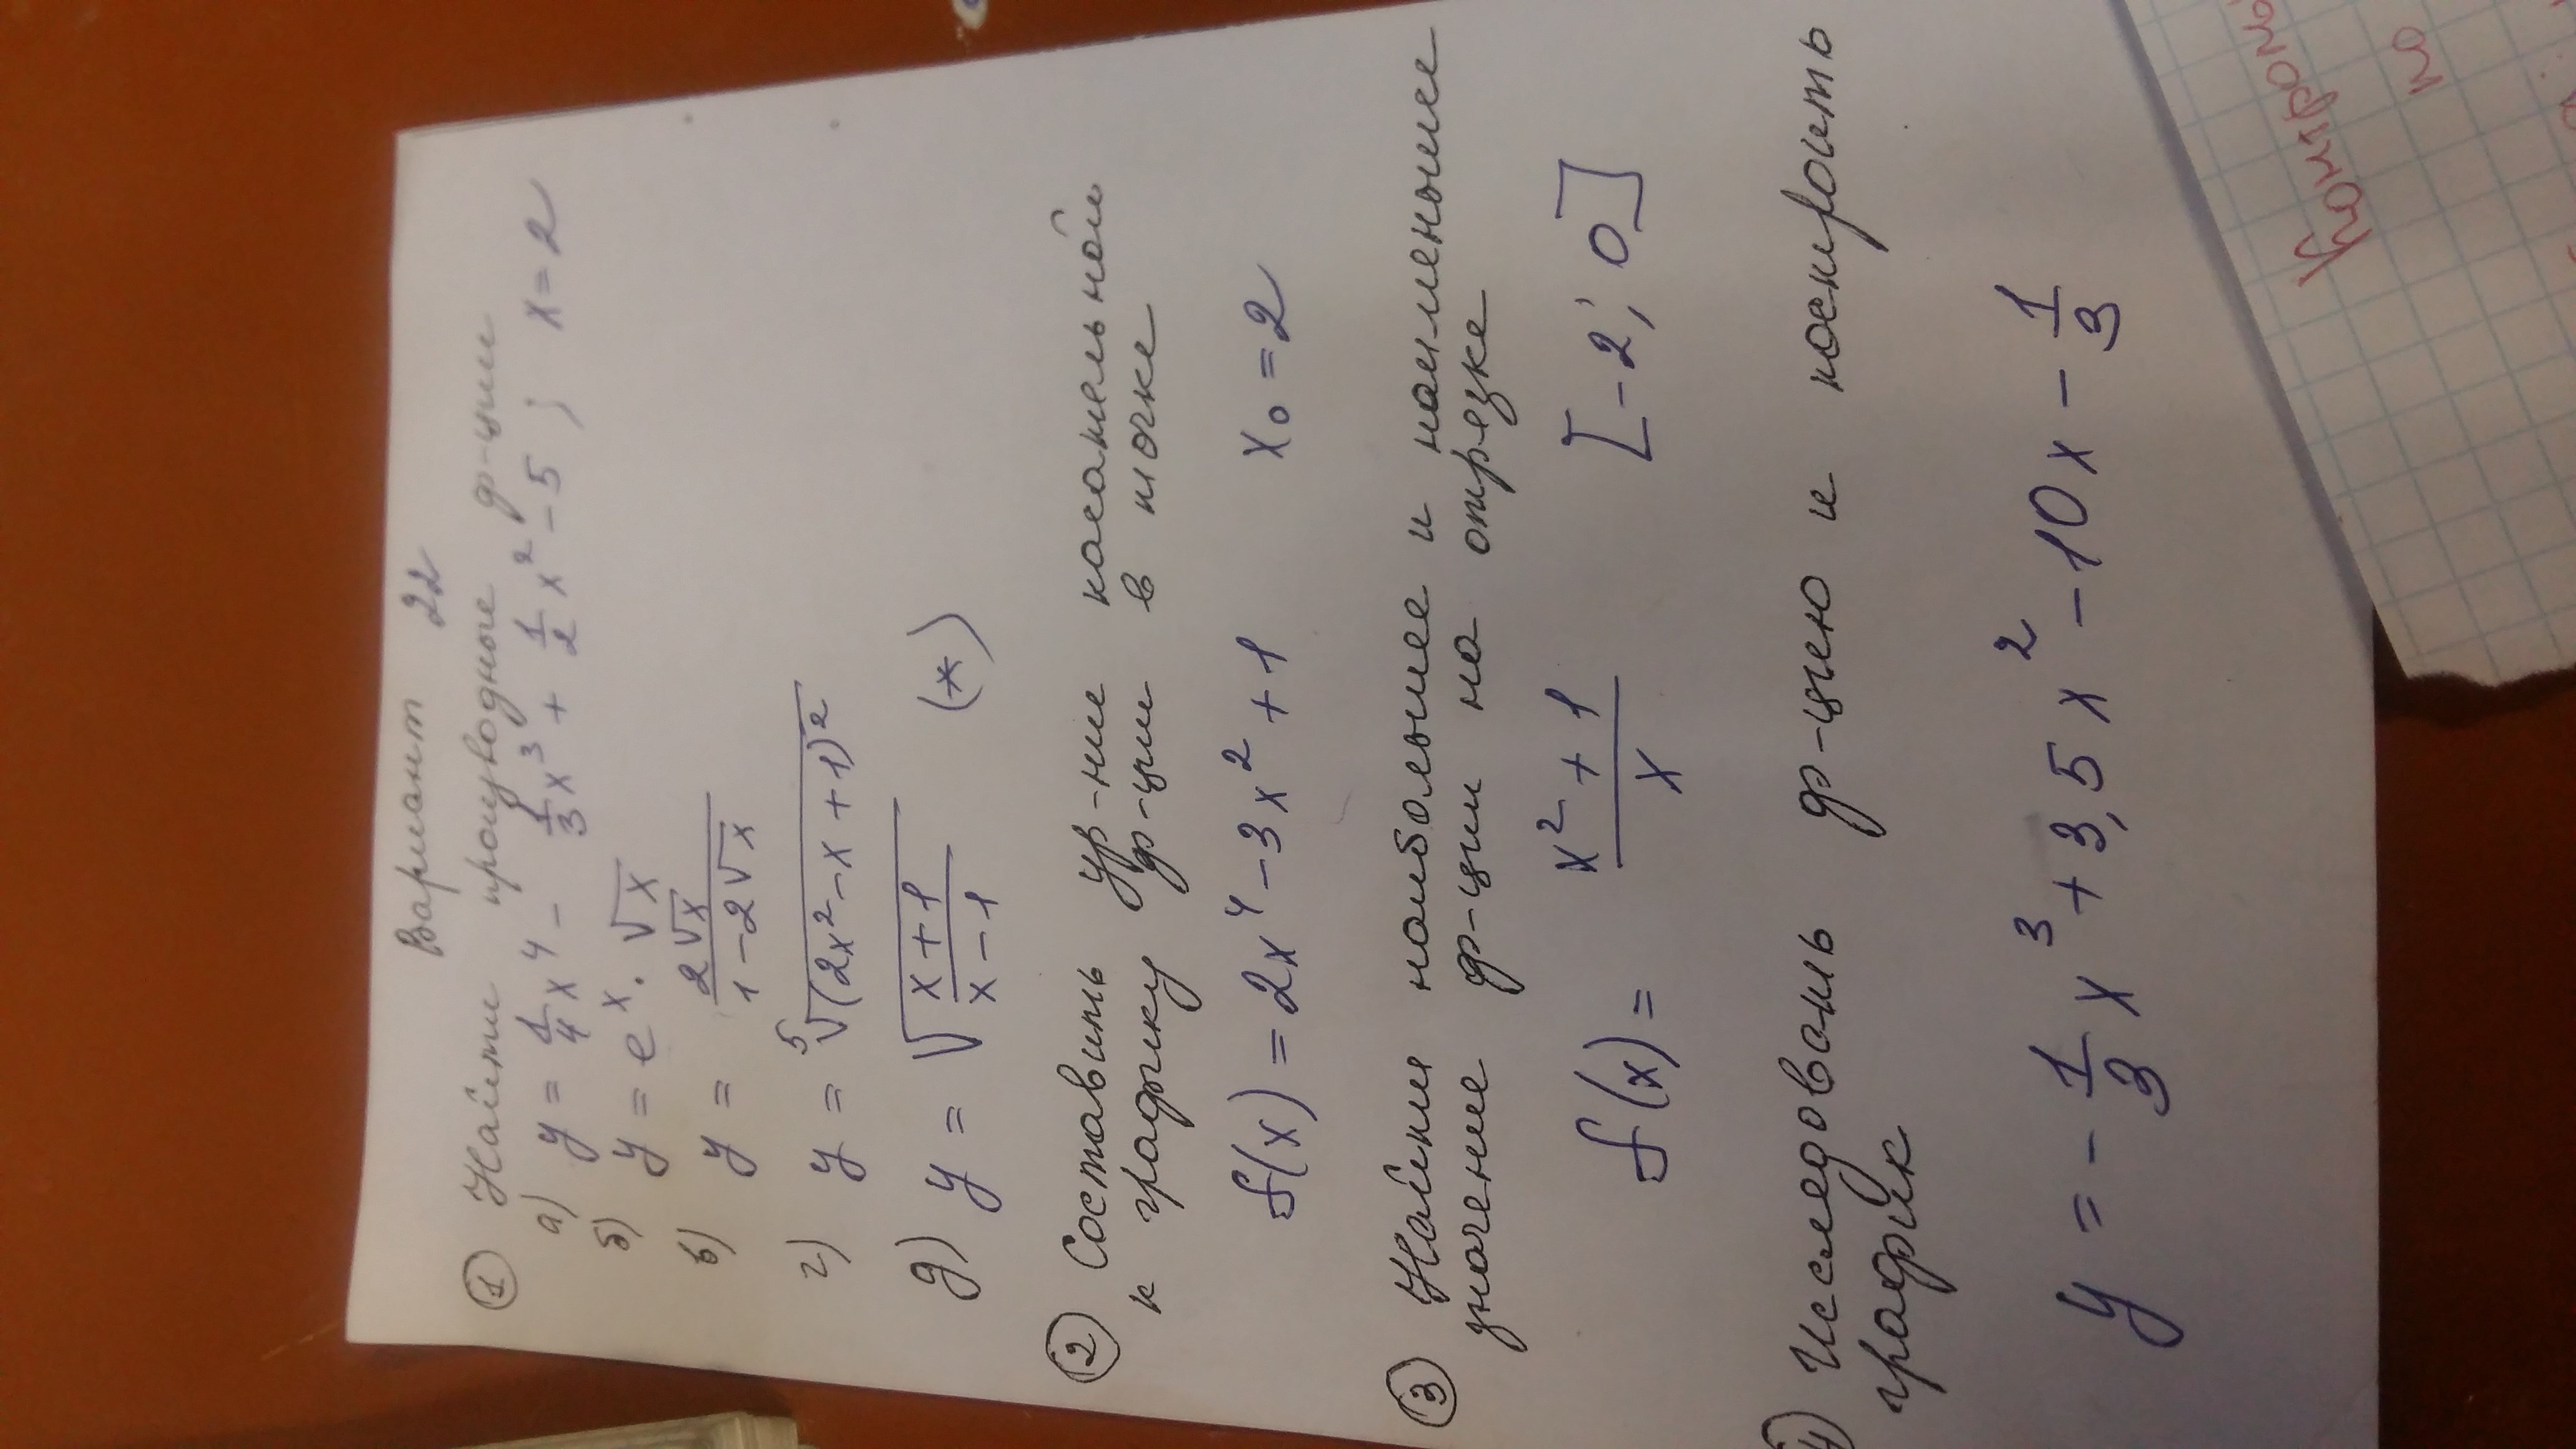 Вариант 22
① Найти производные ф-ции
а) y = 1/4 x⁴ - 1/3 x³ + 1/2 x² - 5 ; x = 2
б) y = eˣ · √x
в) y = 2√x / (1 - 2√x)
г) y = ⁵√(2x² - x + 1)²
д) y = √((x + 1)/(x - 1)) (*)
② Составить ур-ние касательной
к графику ф-ции в точке
f(x) = 2x⁴ - 3x² + 1 x₀ = 2
③ Найти наибольшее и наименьшее
значение ф-ции на отрезке
f(x) = (x² + 1)/x [-2; 0]
4) Исследовать ф-цию и построить
график
y = - 1/3 x³ + 3,5x² - 10x - 1/3
по